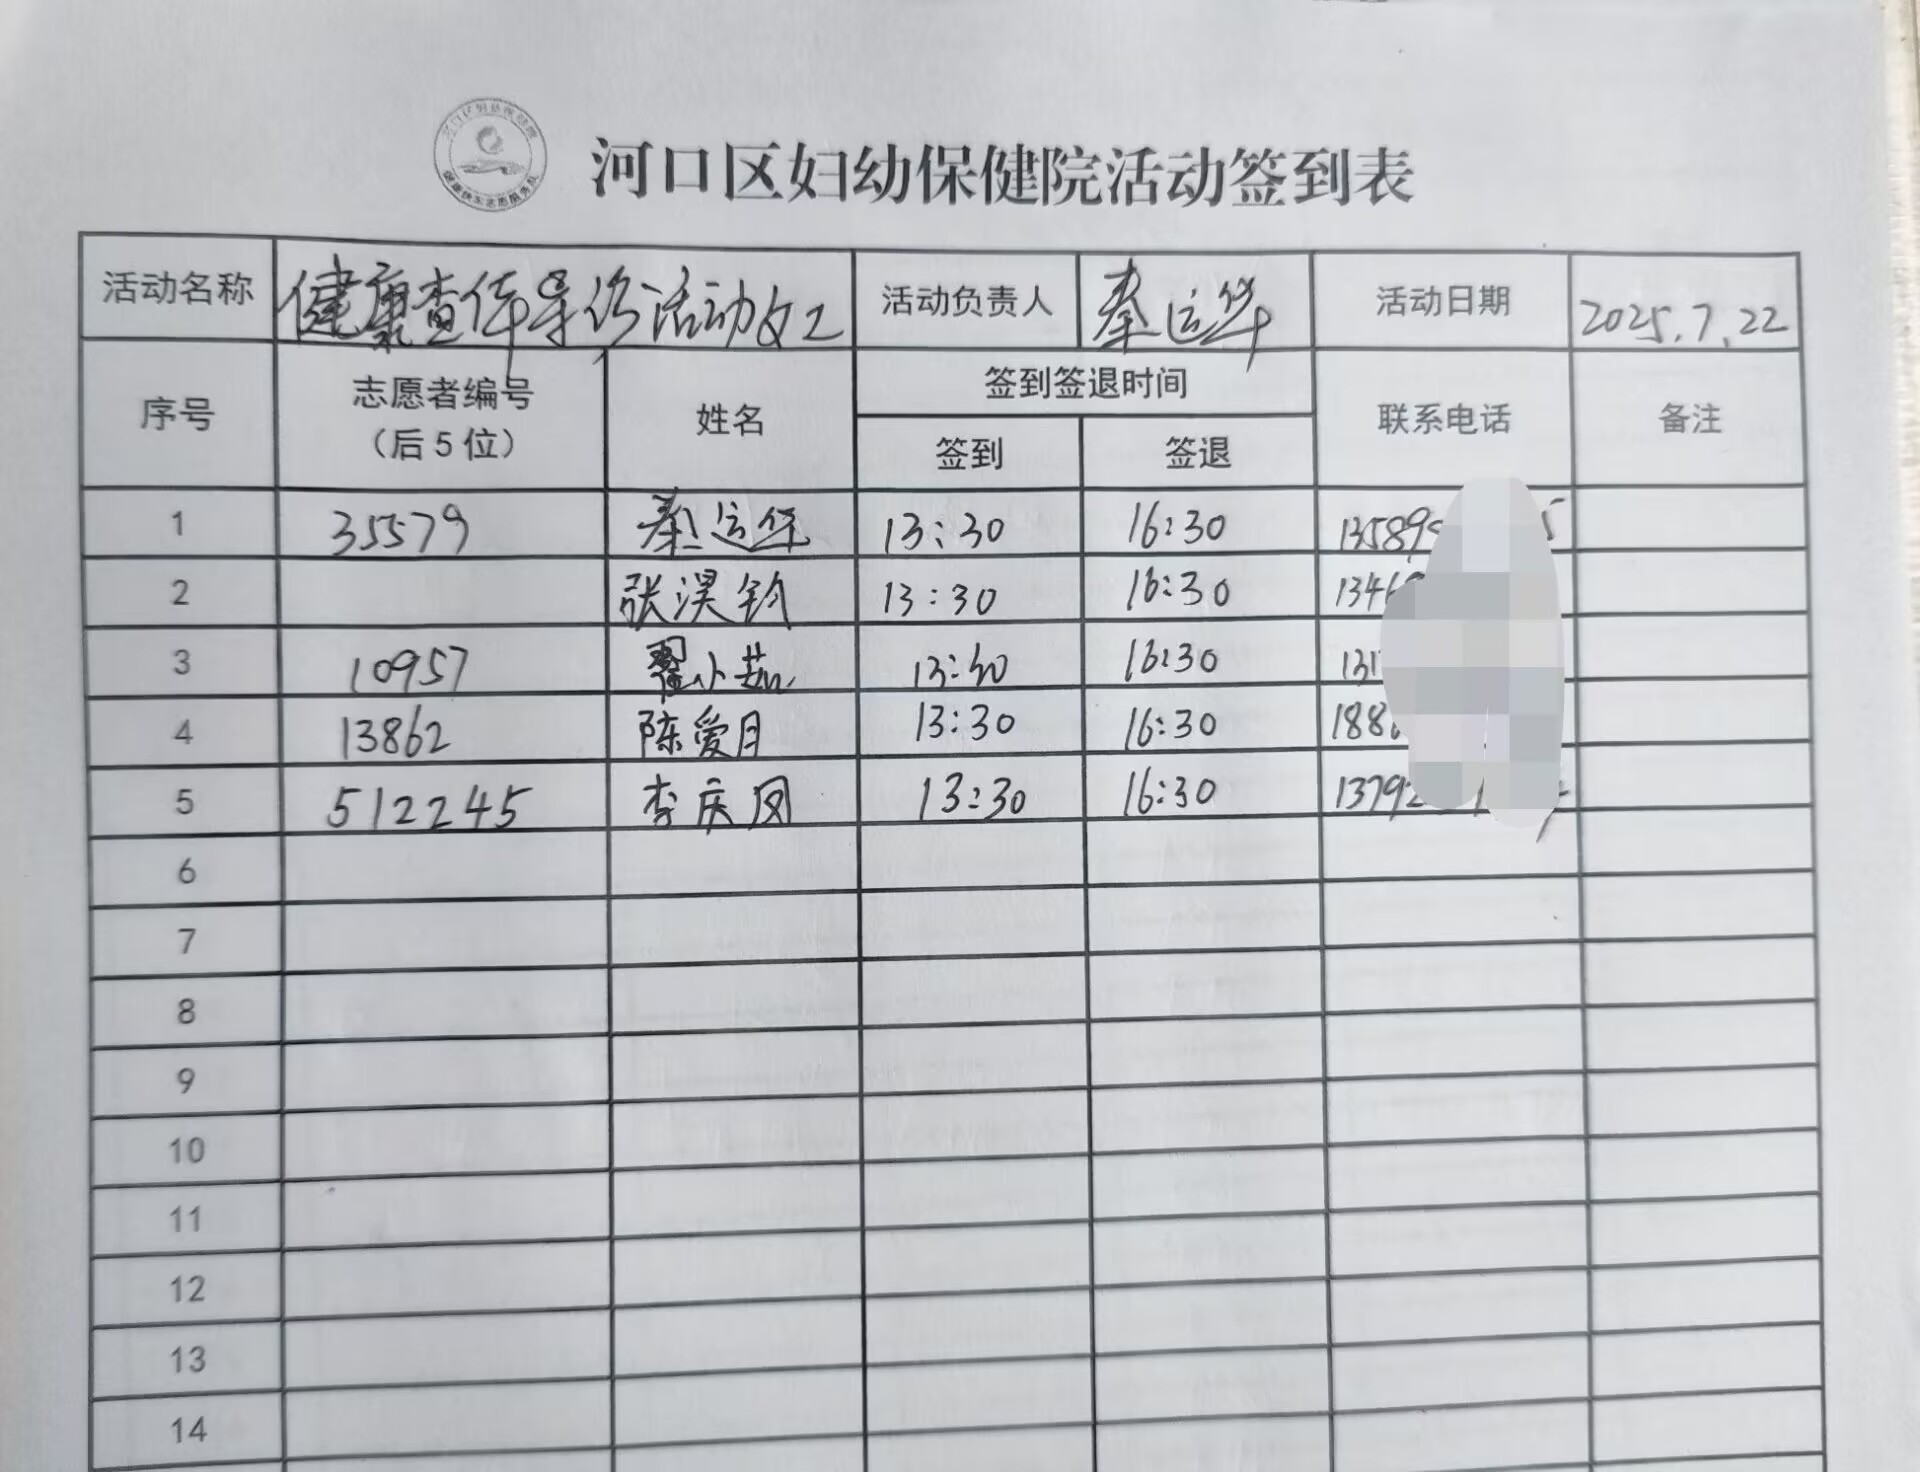 河口区妇幼保健院活动签到表
活动名称 健康查体导诊活动女工 活动负责人 秦运华 活动日期 2025.7.22
序号 志愿者编号（后5位） 姓名 签到签退时间 联系电话 备注
签到 签退
1 35579 秦运华 13:30 16:30 13589
2 张淏钤 13:30 16:30 134
3 10957 翟小茹 13:30 16:30 131
4 13862 陈爱月 13:30 16:30 188
5 512245 李庆凤 13:30 16:30 1379
6
7
8
9
10
11
12
13
14